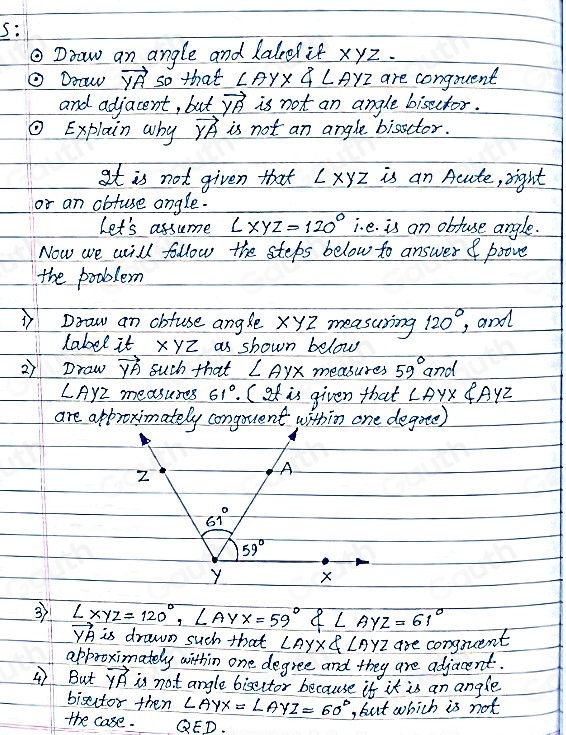 S:
⊙ Draw an angle and label it XYZ.
⊙ Draw YA⃗ so that ∠AYX & ∠AYZ are congruent
and adjacent, but YA⃗ is not an angle bisector.
⊙ Explain why YA⃗ is not an angle bisector.
It is not given that ∠XYZ is an Acute, right
or an obtuse angle.
Let's assume ∠XYZ = 120° i.e. is an obtuse angle.
Now we will follow the steps below to answer & prove
the problem
1) Draw an obtuse angle XYZ measuring 120°, and
label it XYZ as shown below
2) Draw YA⃗ such that ∠AYX measures 59° and
∠AYZ measures 61°. (It is given that ∠AYX & AYZ
are approximately congruent within one degree)
Z
A
61°
59°
Y
X
3) ∠XYZ = 120°, ∠AYX = 59° & ∠AYZ = 61°
YA⃗ is drawn such that ∠AYX & ∠AYZ are congruent
approximately within one degree and they are adjacent.
4) But YA⃗ is not angle bisector because if it is an angle
bisector then ∠AYX = ∠AYZ = 60°, but which is not
the case. QED.